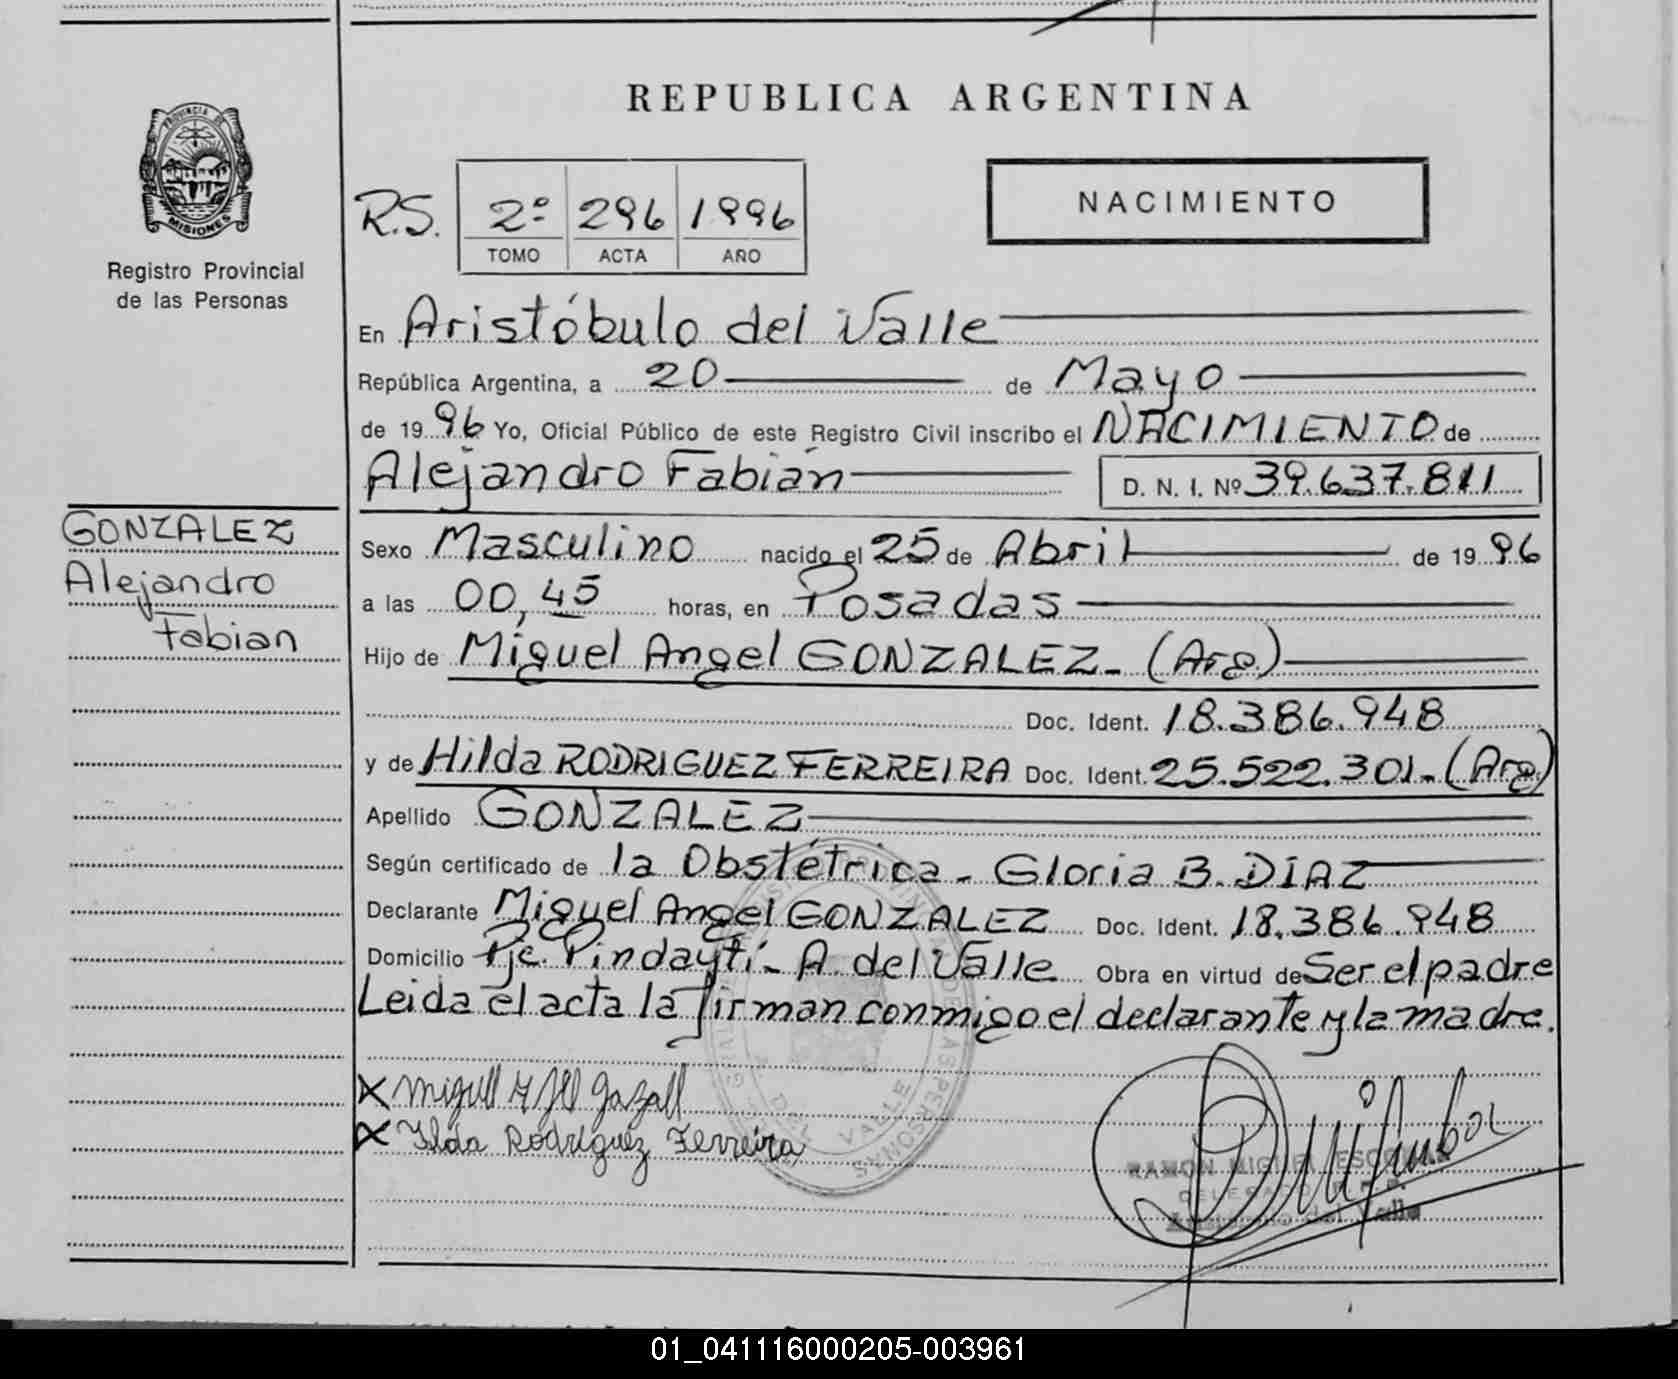 REPUBLICA ARGENTINA
PROVINCIA DE
MISIONES
Registro Provincial
de las Personas
R.S. 2º 296 1996
TOMO ACTA AÑO
NACIMIENTO
En Aristóbulo del Valle
República Argentina, a 20 de Mayo
de 1996 Yo, Oficial Público de este Registro Civil inscribo el NACIMIENTO de
Alejandro Fabián D. N. I. Nº 39.637.811
GONZALEZ
Alejandro
Fabian
Sexo Masculino nacido el 25 de Abril de 1996
a las 00,45 horas, en Posadas
Hijo de Miguel Angel GONZALEZ - (Arg.)
Doc. Ident. 18.386.948
y de Hilda RODRIGUEZ FERREIRA Doc. Ident. 25.522.301.- (Arg)
Apellido GONZALEZ
Según certificado de la Obstétrica - Gloria B. DÍAZ
Declarante Miguel Angel GONZALEZ Doc. Ident. 18.386.948
Domicilio Pje. Pindaytí - A. del Valle Obra en virtud de Ser el padre
Leida el acta la firman conmigo el declarante y la madre.
X Ilda Rodríguez Ferreira
RAMON MIGUEL
DELEGADO
Aristóbulo del Valle
01_041116000205-003961